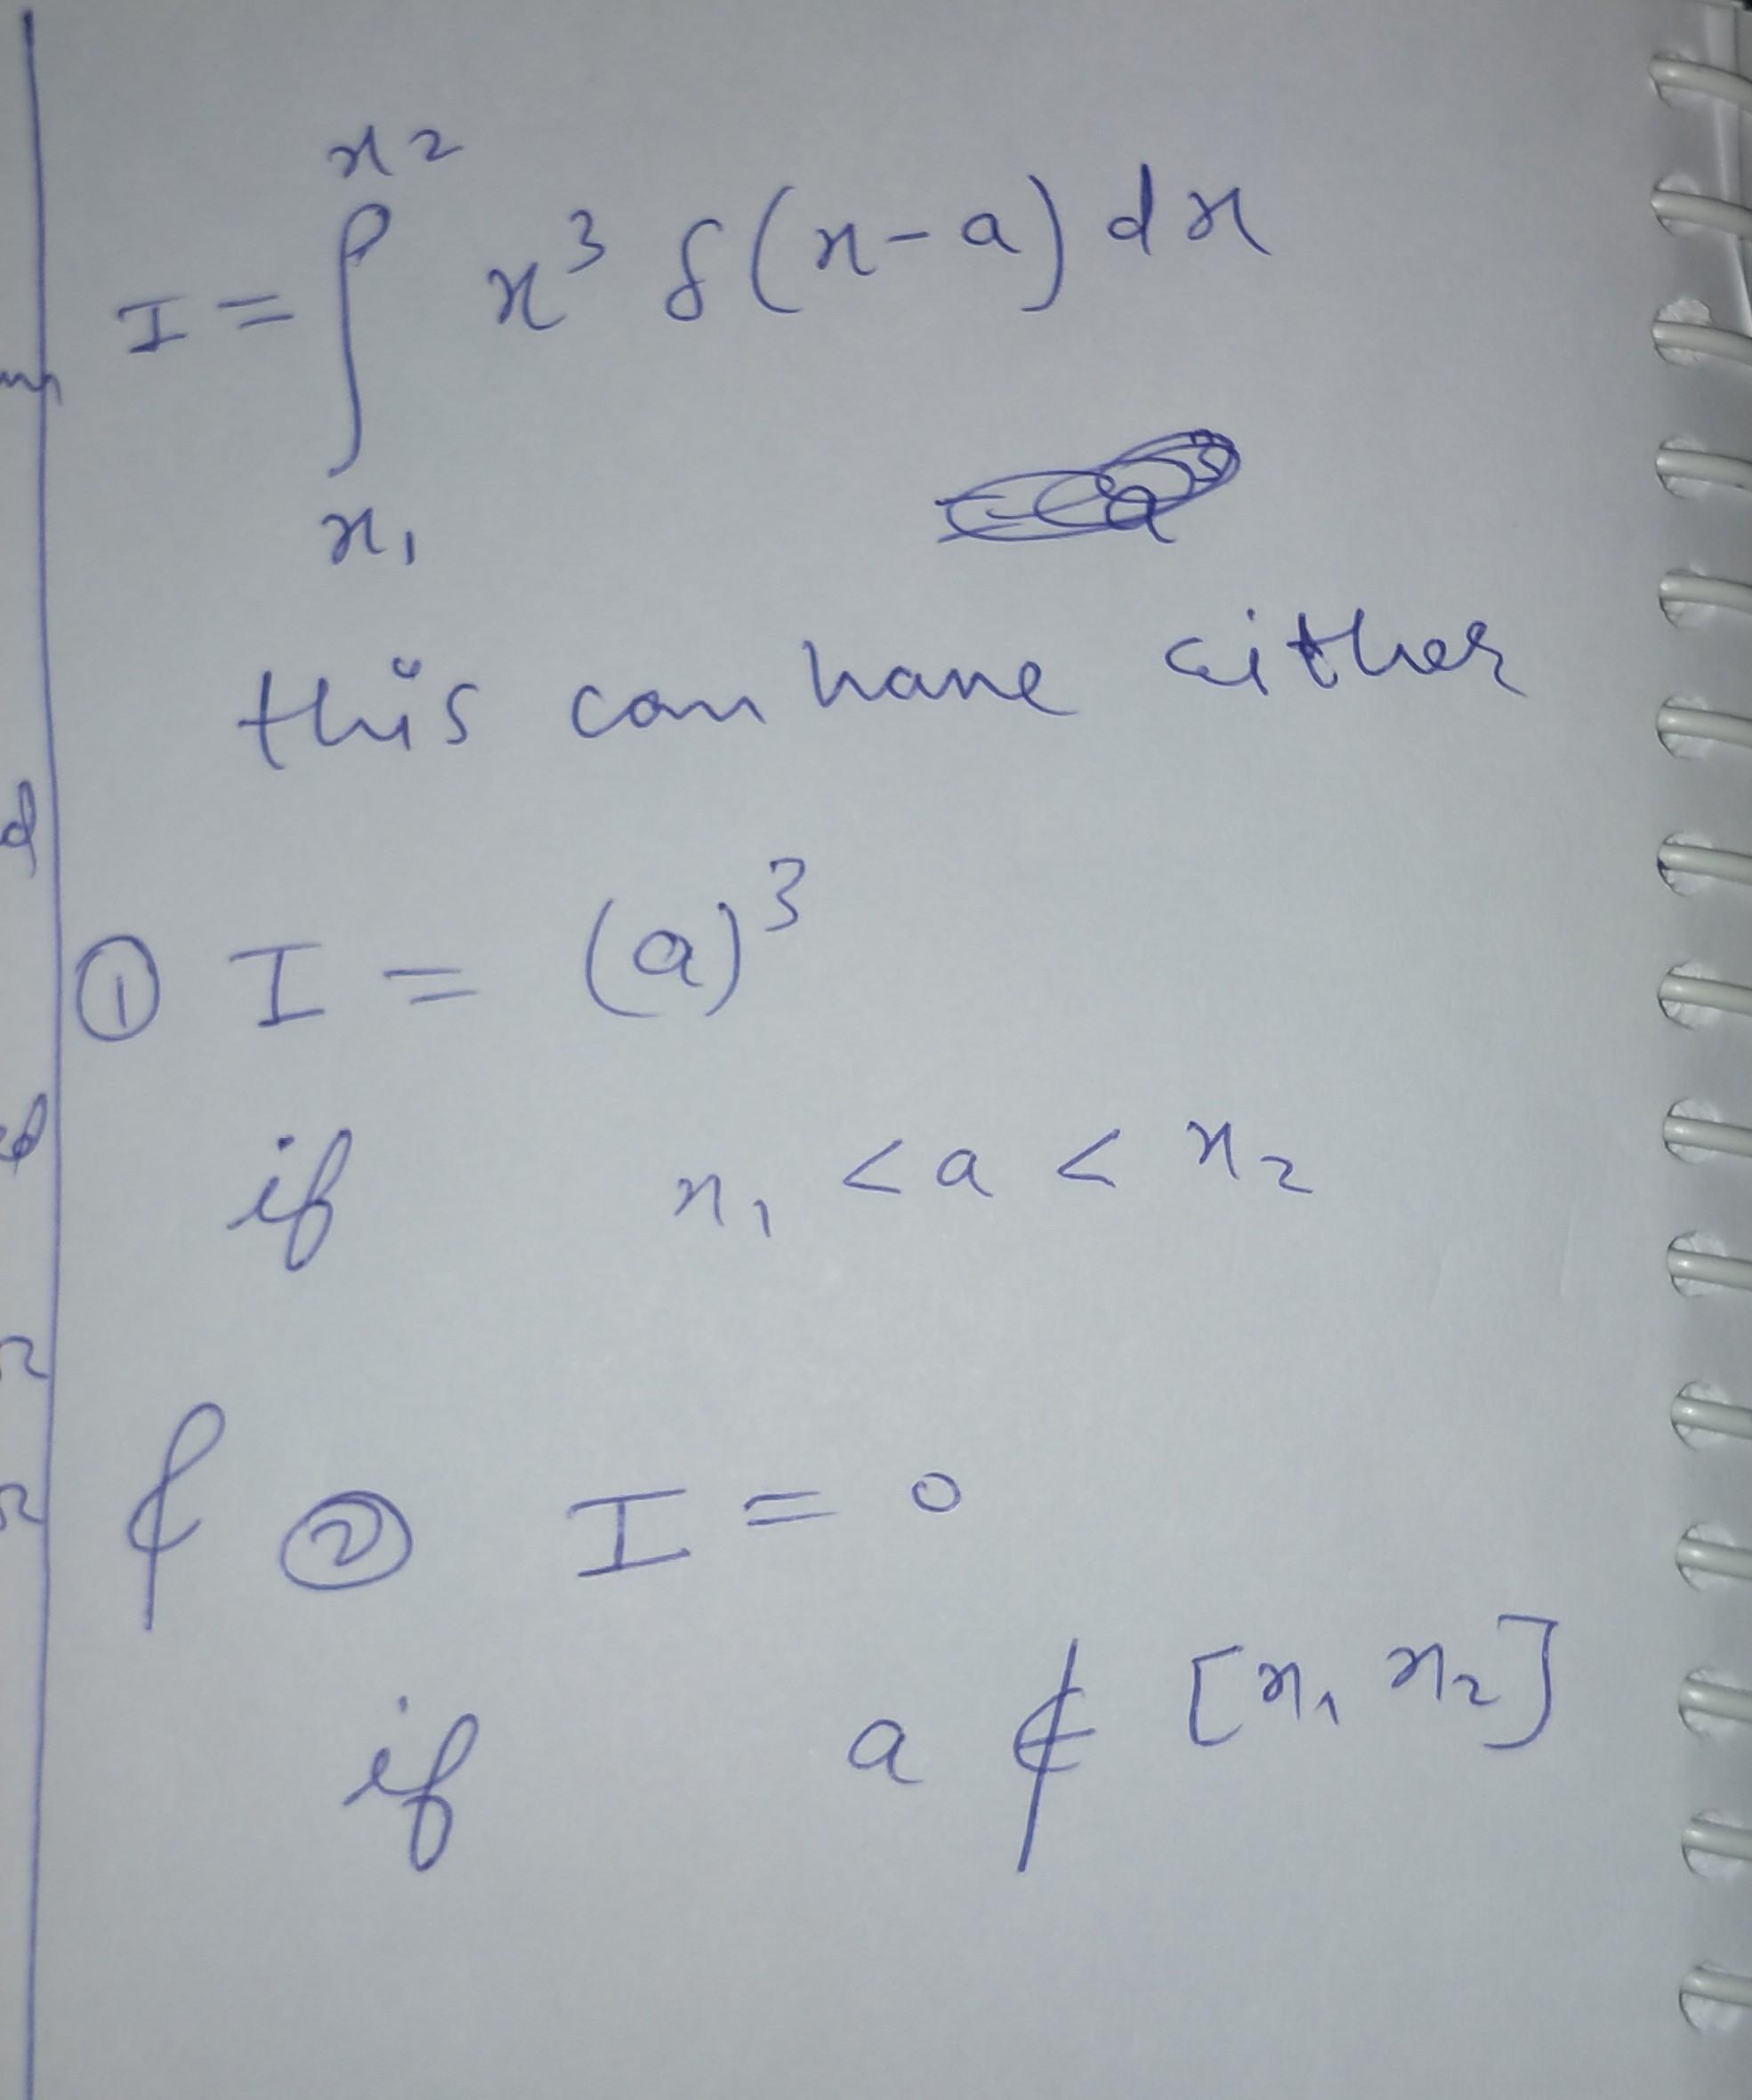 I = ∫ₓ₁ˣ² x³ δ(x-a) dx
this can have either
① I = (a)³
if x₁ < a < x₂
& ② I = 0
if a ∉ [x₁ x₂]